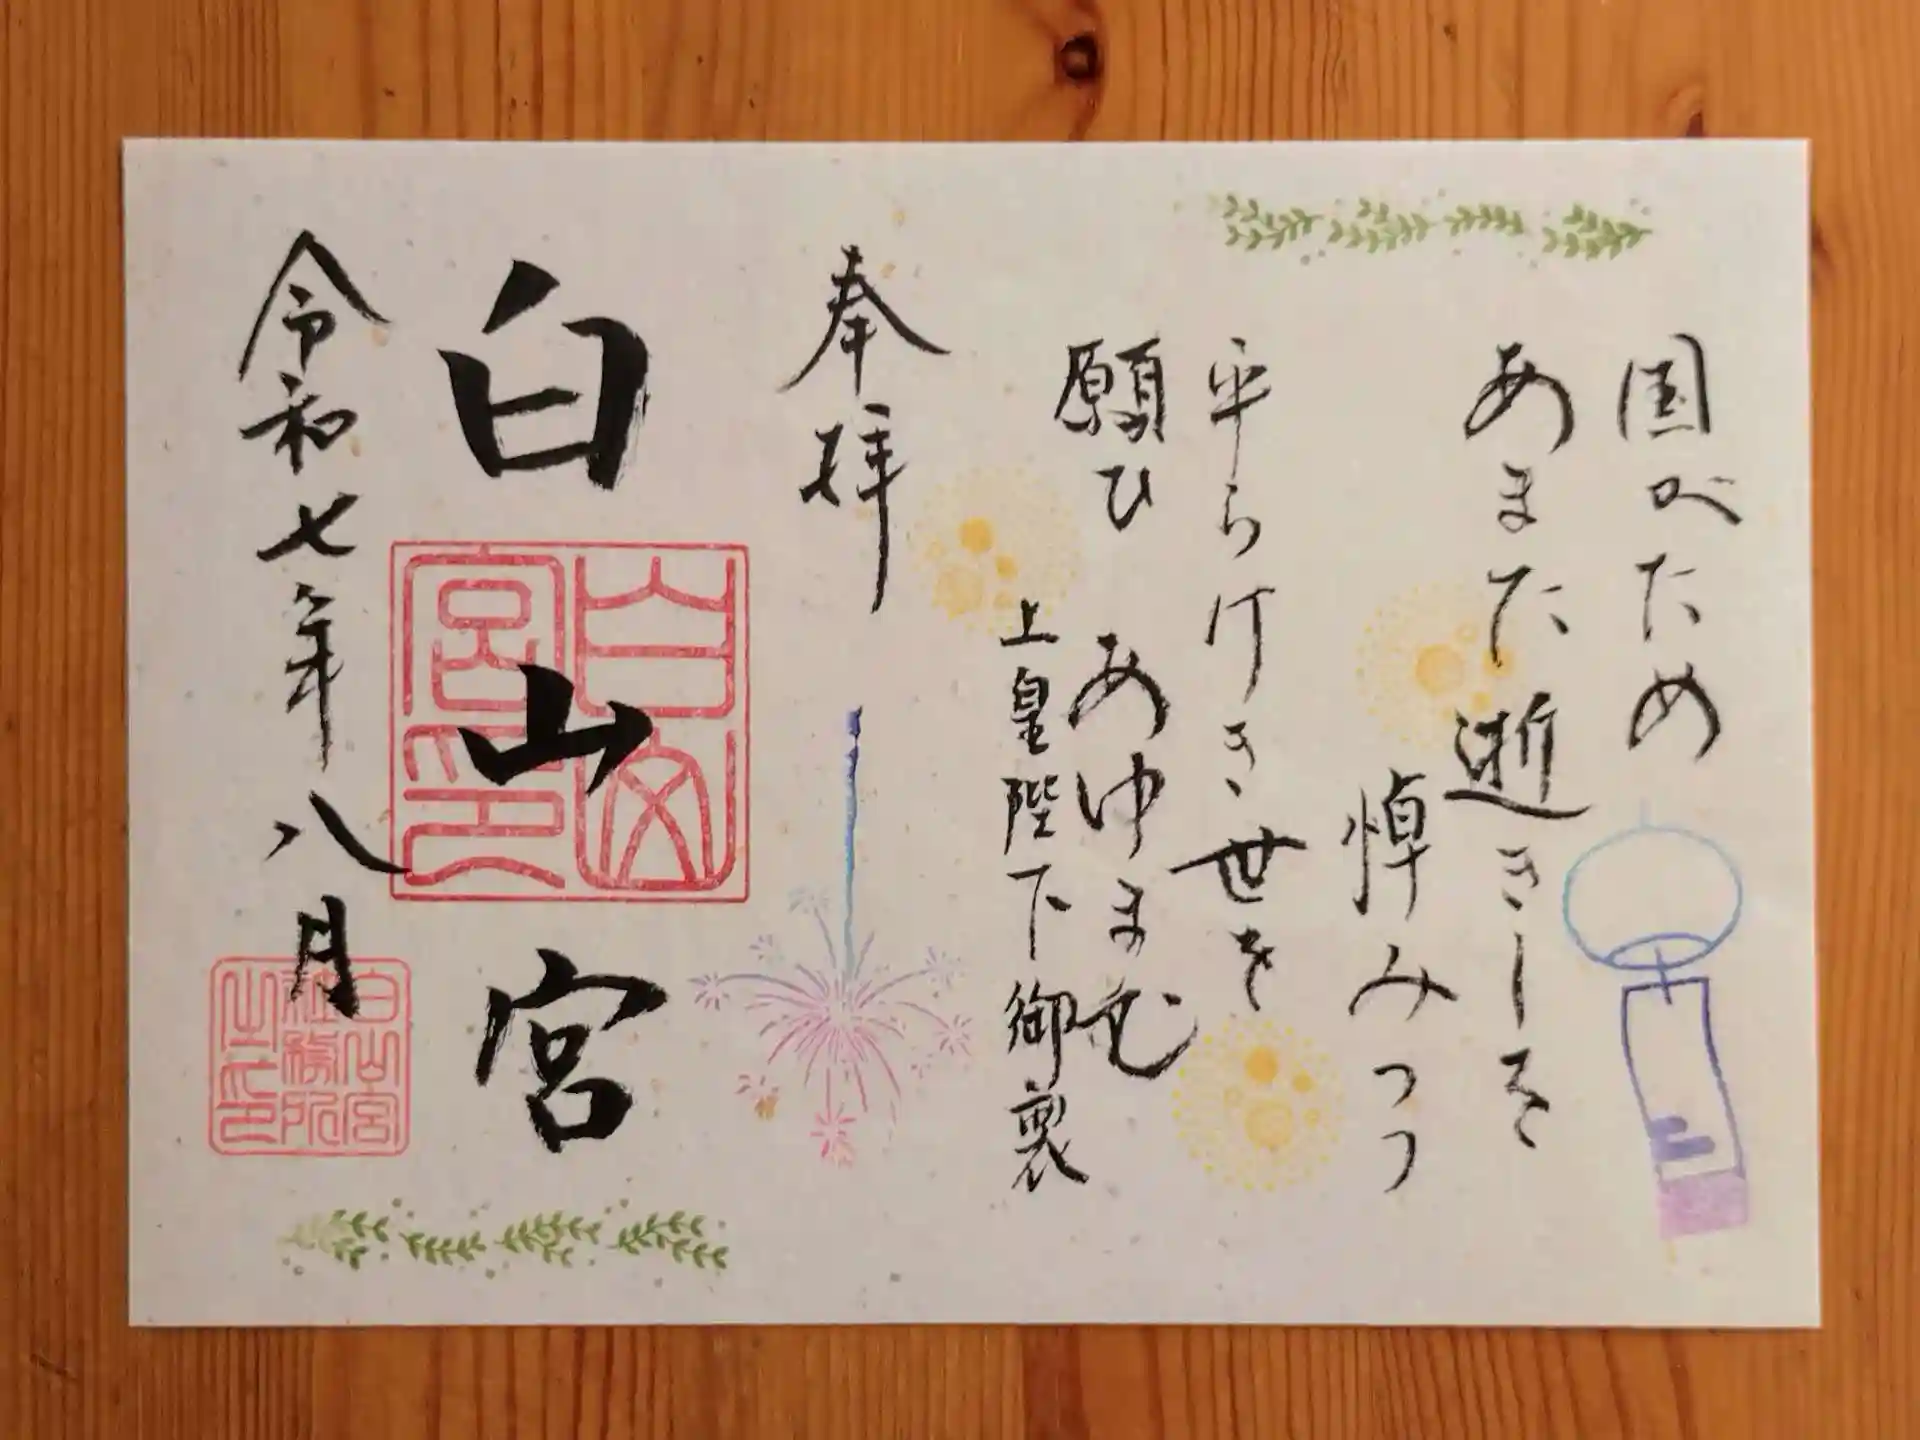 国がため
あまた逝きしを
悼みつつ
平らけき世を
願ひ あゆまむ
上皇陛下御製
奉拝
白山宮
白山宮印
令和七年八月
白山宮
社務所
之印